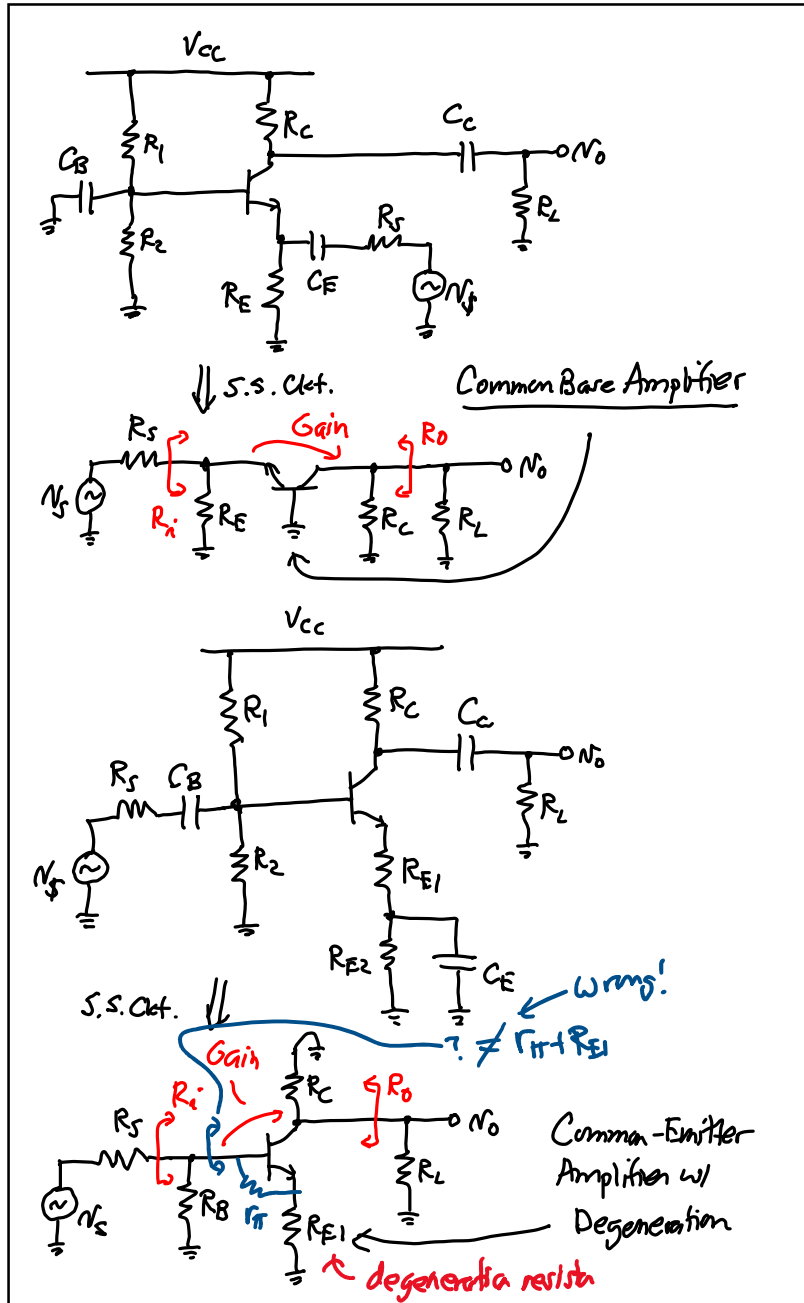 VCC
R1
RC
CC
vo
CB
RL
R2
RS
CE
RE
vs
S.S. Ckt.
Common Base Amplifier
Gain
RS
Ro
vo
vs
Ri
RE
RC
RL
VCC
R1
RC
CC
vo
RS
CB
RL
R2
RE1
vs
RE2
CE
S.S. Ckt.
wrong!
? ≠ rπ+RE1
Gain
RC
Ro
Ri
vo
RS
Common-Emitter
Amplifier w/
Degeneration
RL
RB
rπ
vs
RE1
degeneration resistor